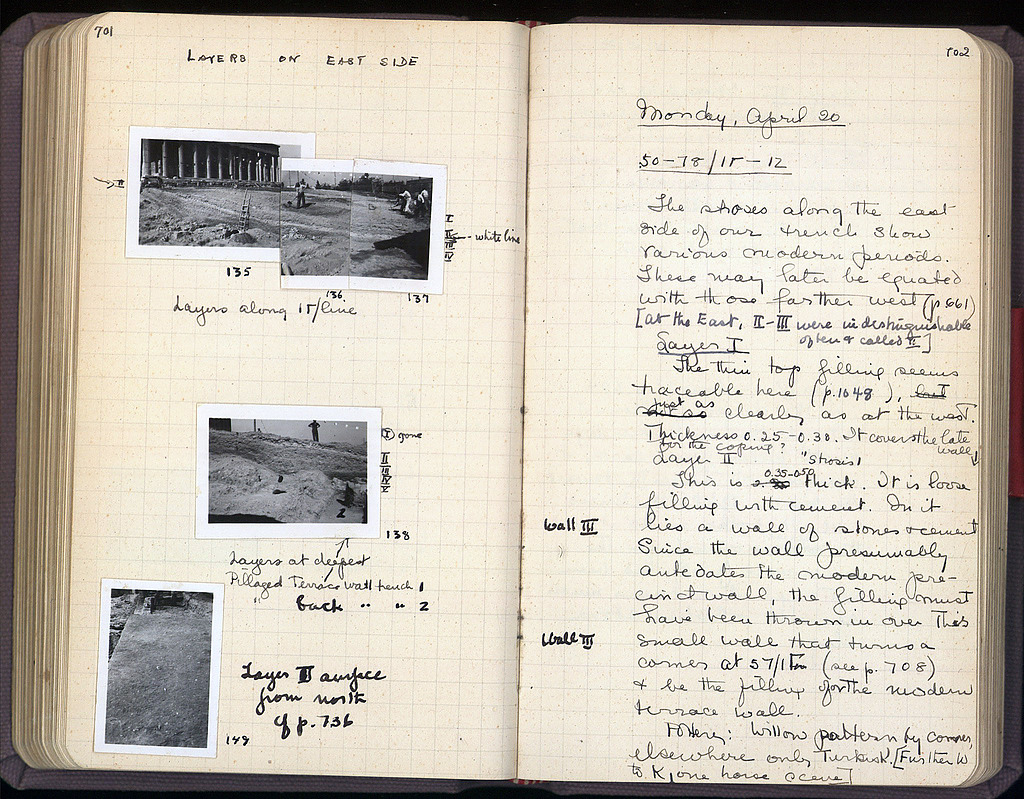 701
LAYERS ON EAST SIDE
II
I
II
III
IV
white line
135
136
137
Layers along 1Γ/line
I gone
II
III
IV
V
2
138
Layers at deepest
Pillaged Terrace wall trench 1
" back " " 2
Layer III surface
from north
cf p. 736
149
702
Monday, April 20
50-78/1Γ-12
The stroses along the east
side of our trench show
various modern periods.
These may later be equated
with those farther west (p 661)
[At the East, II-III were indistinguishable
often & called II]
Layer I
The thin top filling seems
traceable here (p. 1048),
just as
clearly as at the west.
Thickness 0.25-0.30. It covers the late
for the coping? wall
Layer II "Strosis 1
0.35-0.50
This is thick. It is loose
filling with cement. In it
Wall III
lies a wall of stones & cement
Since the wall presumably
antedates the modern pre-
cinct wall, the filling must
have been thrown in over this
Wall III
small wall that turns a
corner at 57/1 (see p. 708)
& be the filling for the modern
terrace wall.
Pottery: Willow pattern by corner,
elsewhere only Turkish. [Further W
to K, one horse scene]